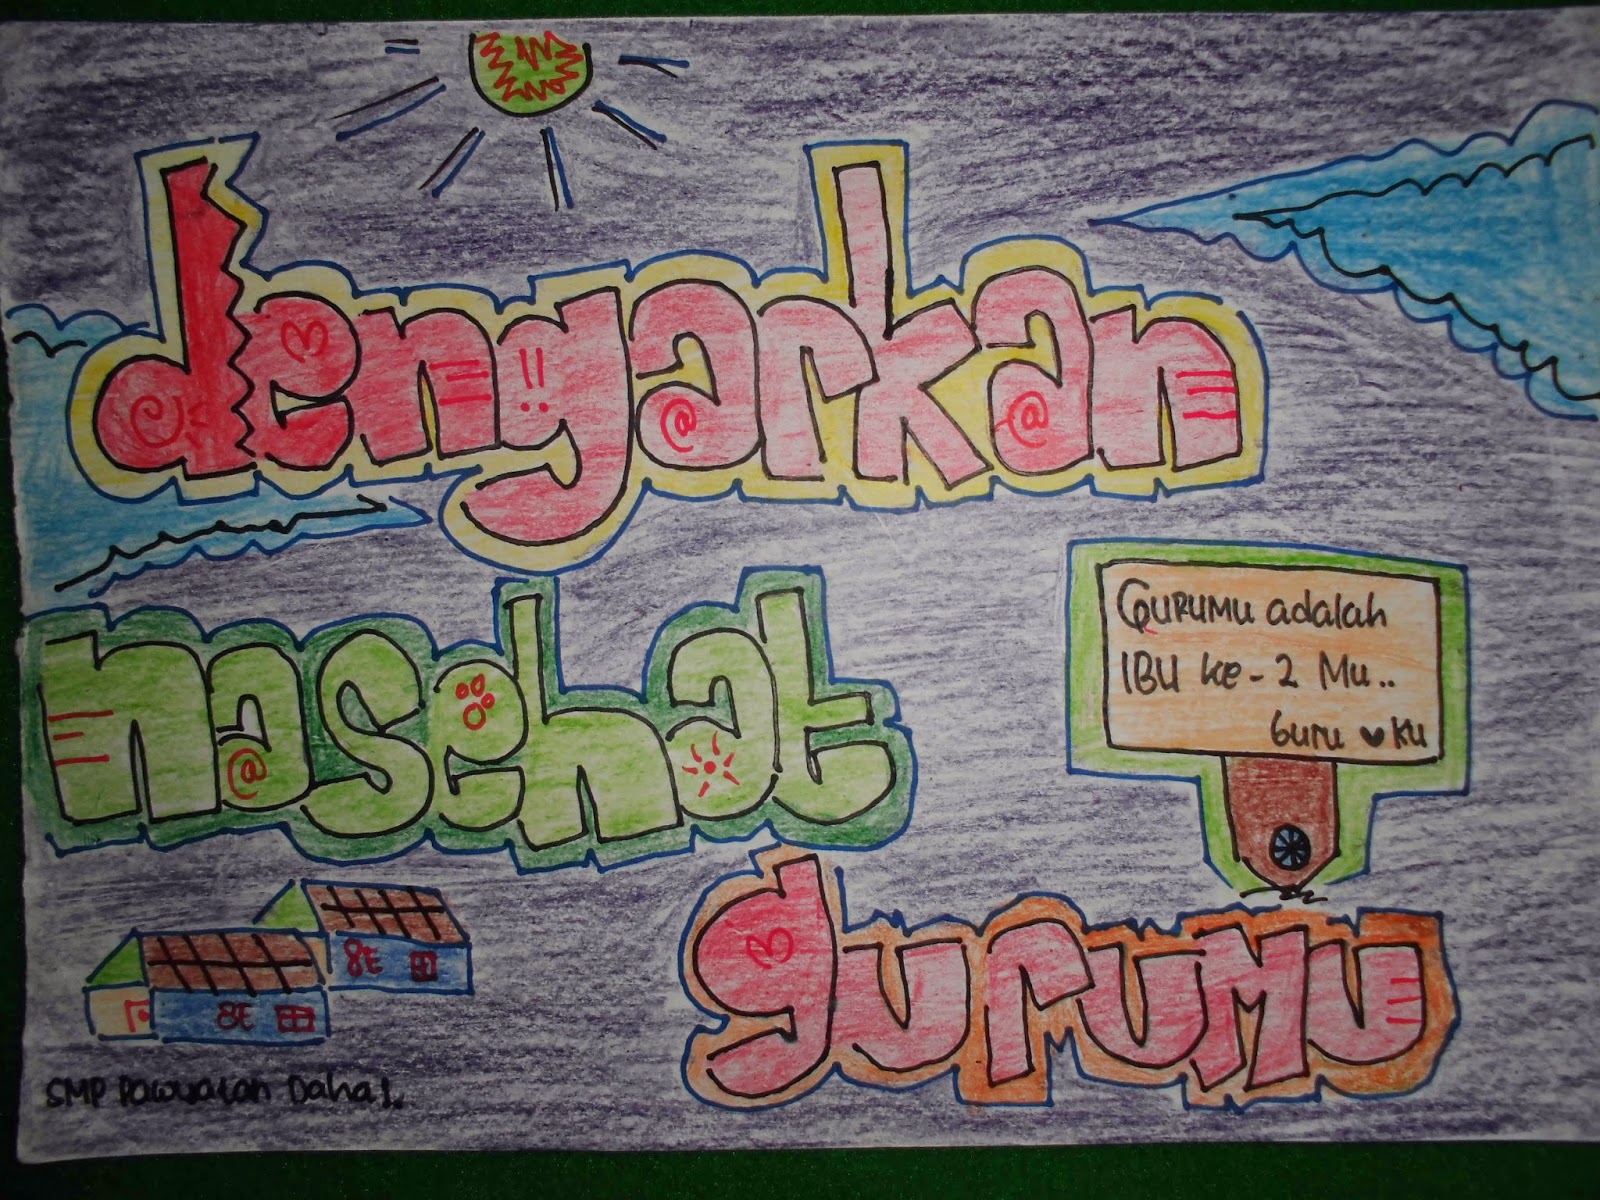 dengarkan
nasehat
GURUMU adalah
IBU ke-2 Mu..
Guru ♥ Ku
guruMu
8E
8E
SMP Pawyatan Daha 1.